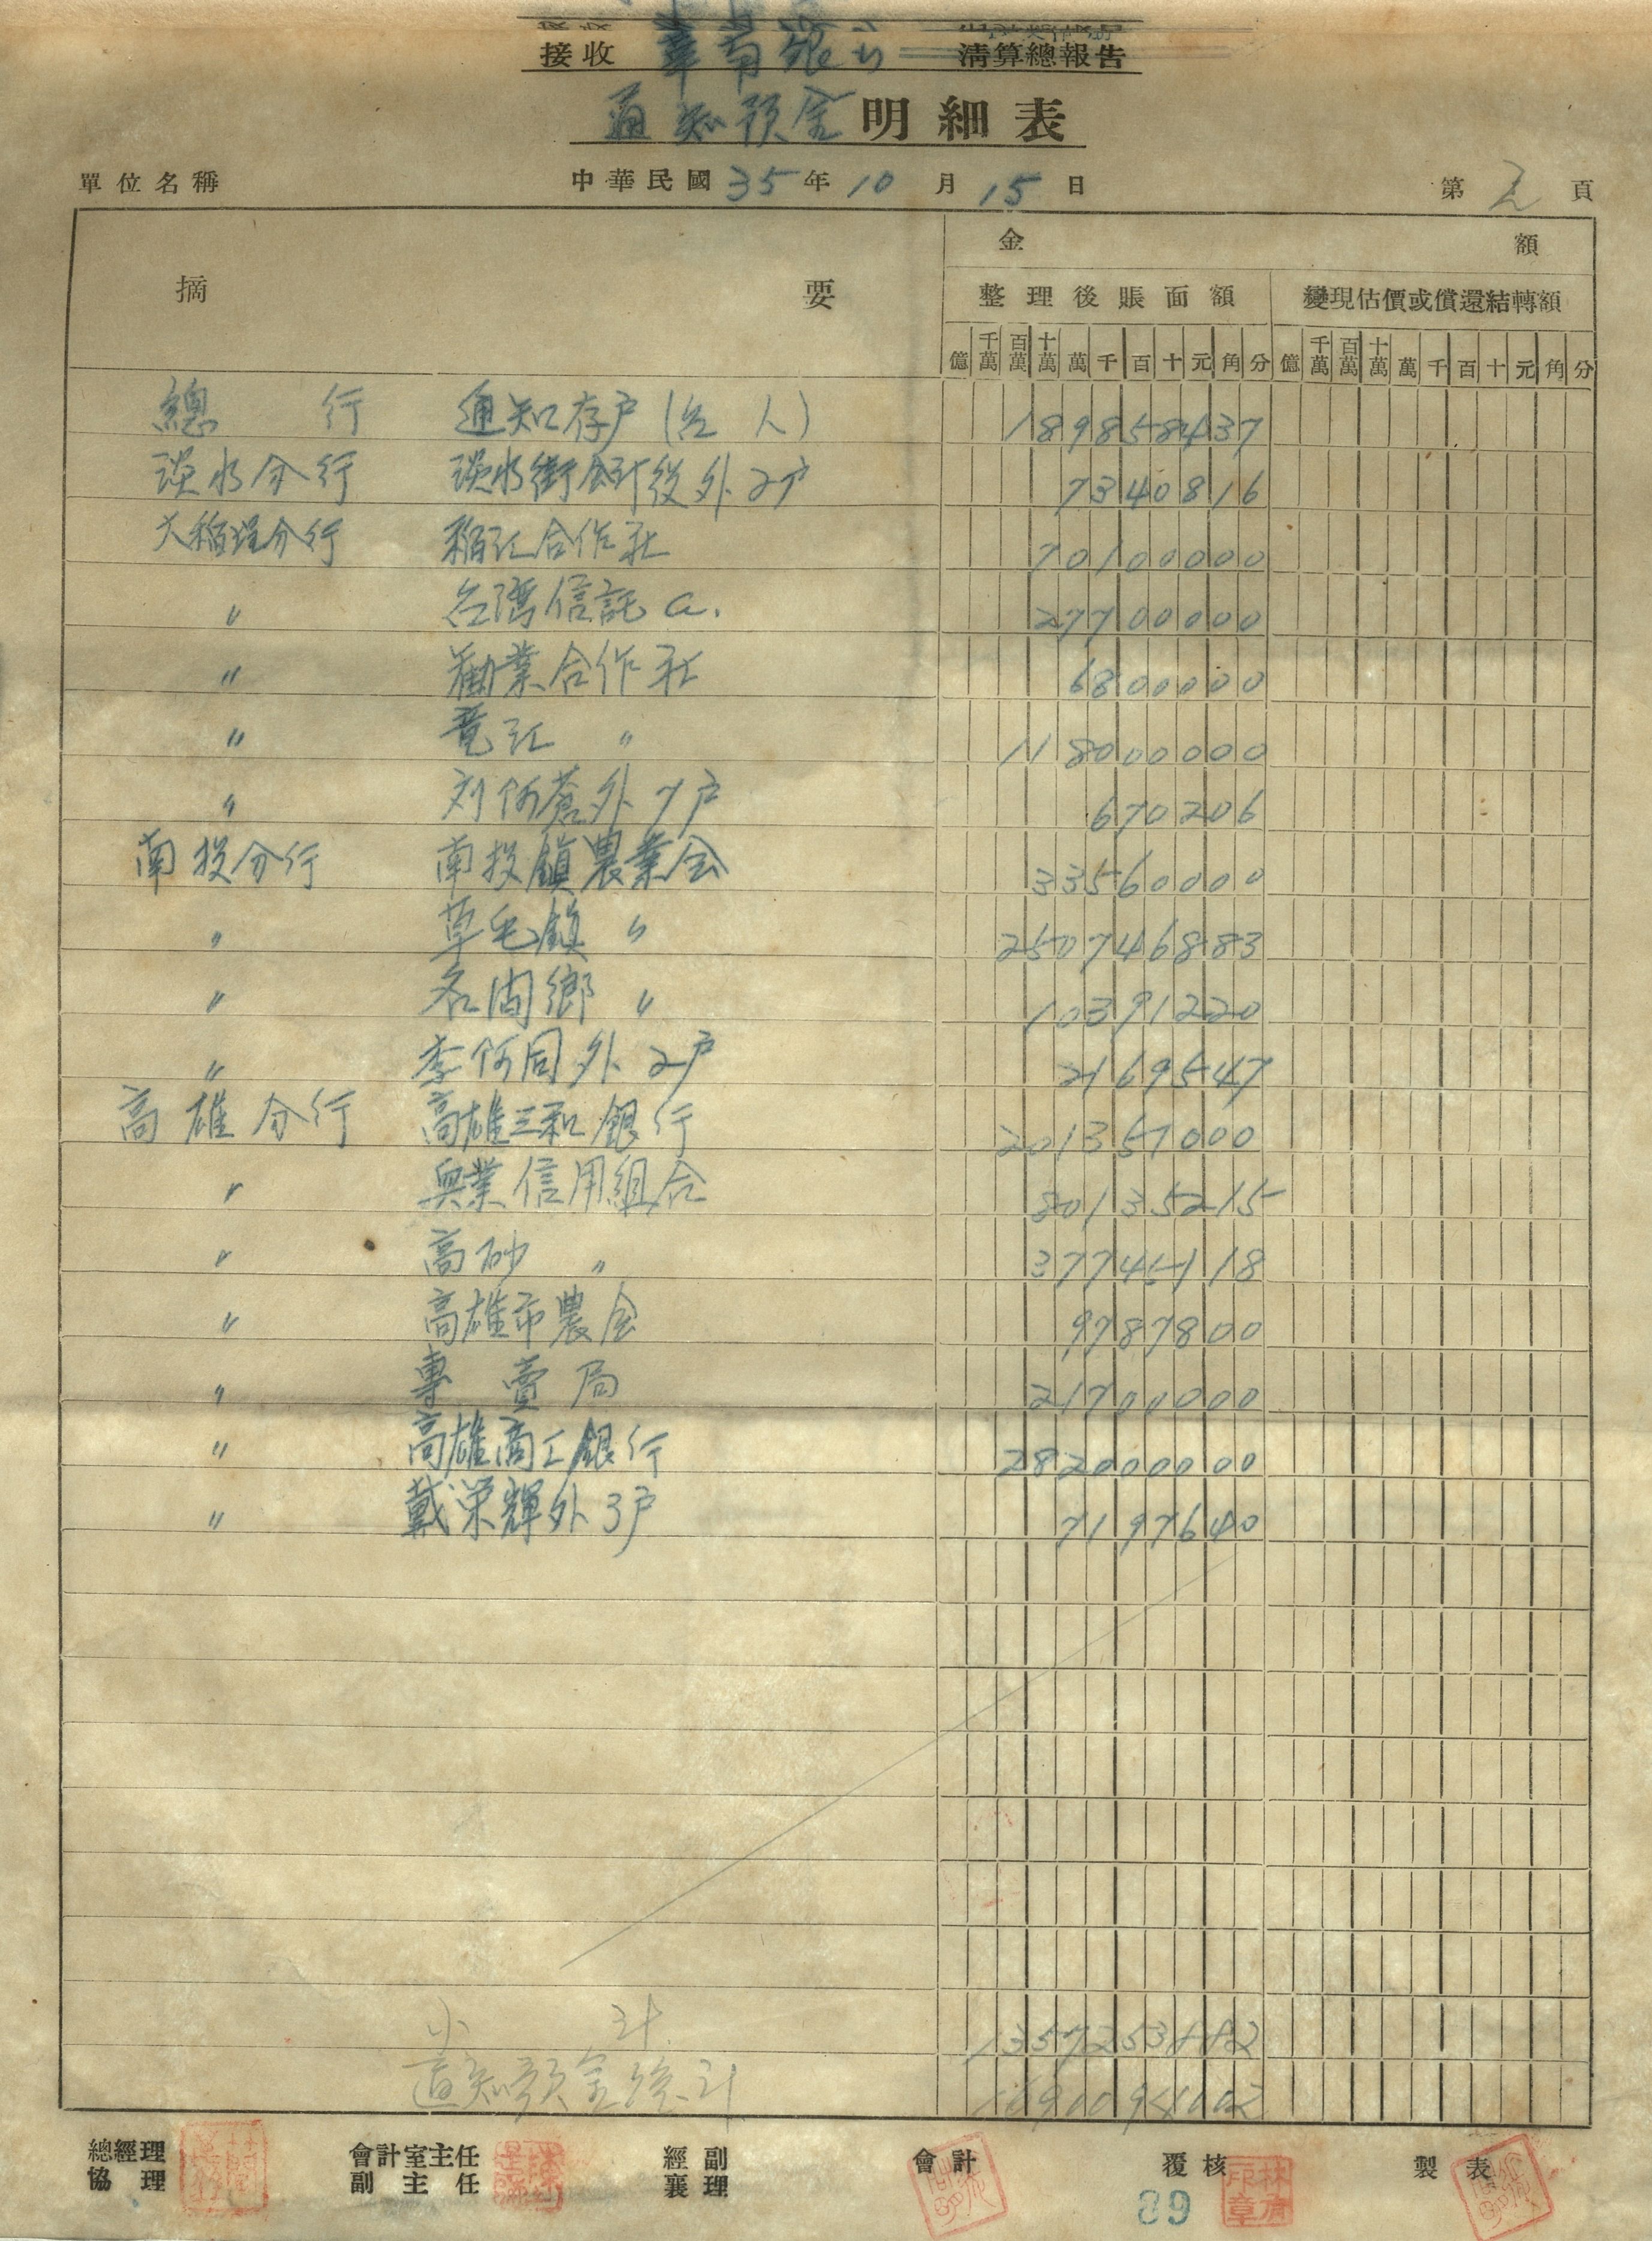 接收 華南銀行 清算總報告
通知預金明細表
單位名稱 中華民國35年10月15日 第2頁
摘要 金額
整理後賬面額 變現估價或償還結轉額
億 千萬 百萬 十萬 萬 千 百 十 元 角 分 億 千萬 百萬 十萬 萬 千 百 十 元 角 分
總行 通知存户(台人) 189858437
淡水分行 淡水街會計役外2户 7340816
大稻埕分行 稻江合作社 70100000
〃 台湾信託 a. 27700000
〃 勸業合作社 6800000
〃 竜江 〃 118000000
〃 刘阿蒼外7户 670206
南投分行 南投鎮農業会 33560000
〃 草屯鎮 〃 250746883
〃 名间鄉 〃 10391220
〃 李阿同外2户 2169547
高雄分行 高雄三和銀行 201357000
〃 興業信用組合 80135215
〃 高砂 〃 37745118
〃 高雄市農会 9787800
〃 專賣局 21700000
〃 高雄商工銀行 282000000
〃 戴栄輝外3户 7197640
小計
通知預金總計
總經理 會計室主任 經副 會計 覆核 製表
協理 副主任 襄理
89